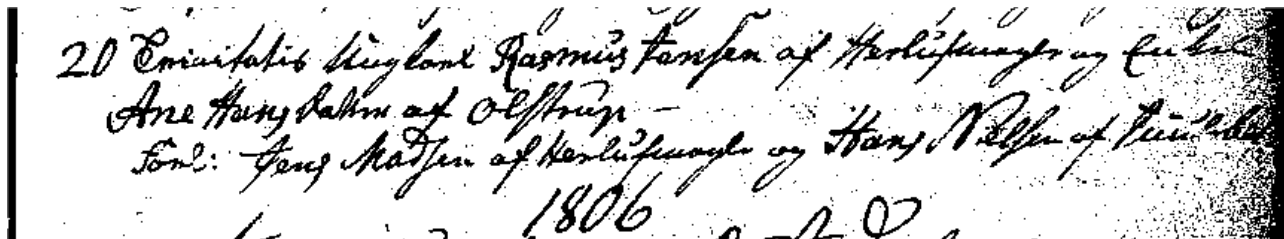 20 Trinitatis Ungkarl Rasmus Jensen af Herlufmagle og Enke
Ane Hansdatter af Olstrup –
Forl: Jens Madsen af Herlufmagle og Hans Nielsen af
1806